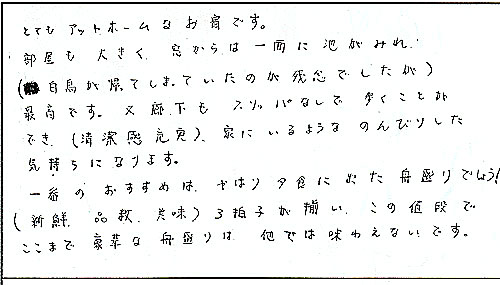 とてもアットホームなお宿です。
部屋も大きく、窓からは一面に池がみれ、
(白鳥が帰てしまっていたのが残念でしたが)
最高です。又廊下もスリッパなしで歩くことが
でき、(清潔感充実)、家にいるようなのんびりした
気持ちになります。
一番のおすすめは、やはり夕食に出た舟盛りでしょう!
(新鮮、品数、美味)3拍子が揃い、この値段で
ここまで豪華な舟盛りは、他では味わえないです。